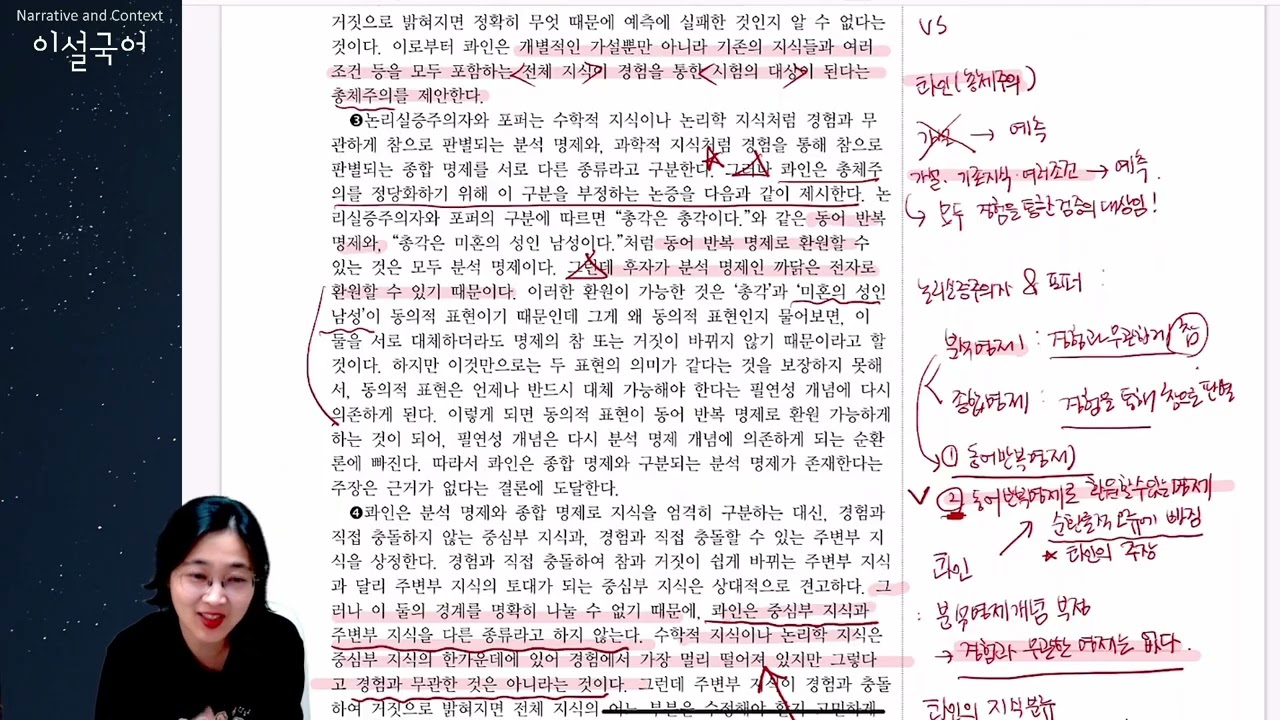 Narrative and Context
이설국어
거짓으로 밝혀지면 정확히 무엇 때문에 예측에 실패한 것인지 알 수 없다는
것이다. 이로부터 콰인은 개별적인 가설뿐만 아니라 기존의 지식들과 여러
조건 등을 모두 포함하는 전체 지식이 경험을 통한 시험의 대상이 된다는
총체주의를 제안한다.
❸논리실증주의자와 포퍼는 수학적 지식이나 논리학 지식처럼 경험과 무
관하게 참으로 판별되는 분석 명제와, 과학적 지식처럼 경험을 통해 참으로
판별되는 종합 명제를 서로 다른 종류라고 구분한다. 그러나 콰인은 총체주
의를 정당화하기 위해 이 구분을 부정하는 논증을 다음과 같이 제시한다. 논
리실증주의자와 포퍼의 구분에 따르면 “총각은 총각이다.”와 같은 동어 반복
명제와, “총각은 미혼의 성인 남성이다.”처럼 동어 반복 명제로 환원할 수
있는 것은 모두 분석 명제이다. 그런데 후자가 분석 명제인 까닭은 전자로
환원할 수 있기 때문이다. 이러한 환원이 가능한 것은 ‘총각’과 ‘미혼의 성인
남성’이 동의적 표현이기 때문인데 그게 왜 동의적 표현인지 물어보면, 이
둘을 서로 대체하더라도 명제의 참 또는 거짓이 바뀌지 않기 때문이라고 할
것이다. 하지만 이것만으로는 두 표현의 의미가 같다는 것을 보장하지 못해
서, 동의적 표현은 언제나 반드시 대체 가능해야 한다는 필연성 개념에 다시
의존하게 된다. 이렇게 되면 동의적 표현이 동어 반복 명제로 환원 가능하게
하는 것이 되어, 필연성 개념은 다시 분석 명제 개념에 의존하게 되는 순환
론에 빠진다. 따라서 콰인은 종합 명제와 구분되는 분석 명제가 존재한다는
주장은 근거가 없다는 결론에 도달한다.
❹콰인은 분석 명제와 종합 명제로 지식을 엄격히 구분하는 대신, 경험과
직접 충돌하지 않는 중심부 지식과, 경험과 직접 충돌할 수 있는 주변부 지
식을 상정한다. 경험과 직접 충돌하여 참과 거짓이 쉽게 바뀌는 주변부 지식
과 달리 주변부 지식의 토대가 되는 중심부 지식은 상대적으로 견고하다. 그
러나 이 둘의 경계를 명확히 나눌 수 없기 때문에, 콰인은 중심부 지식과
주변부 지식을 다른 종류라고 하지 않는다. 수학적 지식이나 논리학 지식은
중심부 지식의 한가운데에 있어 경험에서 가장 멀리 떨어져 있지만 그렇다
고 경험과 무관한 것은 아니라는 것이다. 그런데 주변부 지식이 경험과 충돌
하여 거짓으로 밝혀지면 전체 지식의 어느 부분을 수정해야 할지 고민하게
VS
콰인(총체주의)
가설 → 예측
가설·기존지식·여러조건 → 예측.
↳ 모두 경험을 통한 검증의 대상임!
논리실증주의자 & 포퍼 :
분석명제 : 경험과 무관하게 참
종합명제 : 경험을 통해 참으로 판별
① 동어반복명제
② 동어반복명제로 환원할 수 있는 명제
순환론적 오류에 빠짐
★ 콰인의 주장
콰인
: 분석명제 개념 부정
→ 경험과 무관한 명제는 없다.
콰인의 지식분류